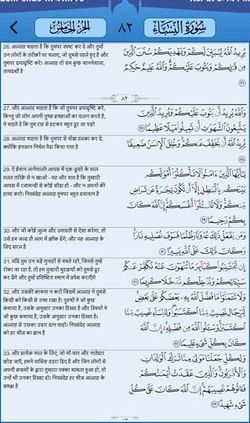 سورة النساء
٨٢
الجزء الخامس
26. अल्लाह चाहता है कि तुमपर स्पष्ट कर दे और तुम्हें
उन लोगों के तरीक़ों पर चलाए, जो तुमसे पहले हुए है और
तुमपर दयादृष्टि करे। अल्लाह तो सब कुछ जाननेवाला,
तत्वदर्शी है
يُرِيدُ اللَّهُ لِيُبَيِّنَ لَكُمْ وَيَهْدِيَكُمْ سُنَنَ الَّذِينَ
مِن قَبْلِكُمْ وَيَتُوبَ عَلَيْكُمْ وَاللَّهُ عَلِيمٌ حَكِيمٌ
٢٦
٨٢
27. और अल्लाह चाहता है कि जो तुमपर दयादृष्टि करे,
किन्तु जो लोग अपनी तुच्छ इच्छाओं का पालन करते है,
वे चाहते है कि तुम राह से हटकर बहुत दूर जा पड़ो
وَاللَّهُ يُرِيدُ أَن يَتُوبَ عَلَيْكُمْ وَيُرِيدُ الَّذِينَ
يَتَّبِعُونَ الشَّهَوَاتِ أَن تَمِيلُوا مَيْلًا عَظِيمًا ٢٧
28. अल्लाह चाहता है कि तुमपर से बोझ हलका कर दे,
क्योंकि इनसान निर्बल पैदा किया गया है
يُرِيدُ اللَّهُ أَن يُخَفِّفَ عَنكُمْ وَخُلِقَ الْإِنسَانُ ضَعِيفًا
٢٨
29. ऐ ईमान लानेवालो! आपस में एक-दूसरे के माल
ग़लत तरीक़े से न खाओ - यह और बात है कि तुम्हारी
आपस में रज़ामन्दी से कोई सौदा हो - और न अपनों की
हत्या करो। निस्संदेह अल्लाह तुमपर बहुत दयावान है
يَا أَيُّهَا الَّذِينَ آمَنُوا لَا تَأْكُلُوا أَمْوَالَكُم
بَيْنَكُم بِالْبَاطِلِ إِلَّا أَن تَكُونَ تِجَارَةً عَن تَرَاضٍ
مِّنكُمْ وَلَا تَقْتُلُوا أَنفُسَكُمْ إِنَّ اللَّهَ كَانَ بِكُمْ
رَحِيمًا ٢٩
30. और जो कोई ज़ुल्म और ज़्यादती से ऐसा करेगा, तो
उसे हम जल्द ही आग में झोंक देंगे, और यह अल्लाह के
लिए सरल है
وَمَن يَفْعَلْ ذَٰلِكَ عُدْوَانًا وَظُلْمًا فَسَوْفَ نُصْلِيهِ نَارًا
وَكَانَ ذَٰلِكَ عَلَى اللَّهِ يَسِيرًا ٣٠
31. यदि तुम उन बड़े गुनाहों से बचते रहो, जिनसे तुम्हें
रोका जा रहा है, तो हम तुम्हारी बुराइयों को तुमसे दूर
कर देंगे और तुम्हें प्रतिष्ठित स्थान में प्रवेश कराएँगे
إِن تَجْتَنِبُوا كَبَائِرَ مَا تُنْهَوْنَ عَنْهُ نُكَفِّرْ عَنكُمْ
سَيِّئَاتِكُمْ وَنُدْخِلْكُم مُّدْخَلًا كَرِيمًا ٣١
32. और उसकी कामना न करो जिसमें अल्लाह ने तुमसे
किसी को किसी से उच्च रखा है। पुरुषों ने जो कुछ
कमाया है, उसके अनुसार उनका हिस्सा है और स्त्रियों ने
जो कुछ कमाया है, उसके अनुसार उनका हिस्सा है।
अल्लाह से उसका उदार दान चाहो। निस्संदेह अल्लाह
को हर चीज़ का ज्ञान है
وَلَا تَتَمَنَّوْا مَا فَضَّلَ اللَّهُ بِهِ بَعْضَكُمْ عَلَىٰ بَعْضٍ
لِّلرِّجَالِ نَصِيبٌ مِّمَّا اكْتَسَبُوا وَلِلنِّسَاءِ نَصِيبٌ
مِّمَّا اكْتَسَبْنَ وَاسْأَلُوا اللَّهَ مِن فَضْلِهِ إِنَّ اللَّهَ
كَانَ بِكُلِّ شَيْءٍ عَلِيمًا ٣٢
33. और प्रत्येक माल के लिए, जो माँ-बाप और नातेदार
छोड़ जाएँ, हमने वासिस ठहरा दिए है और जिन लोगों से
अपनी क़समों के द्वारा तुम्हारा पक्का मामला हुआ हो, तो
उन्हें भी उनका हिस्सा दो। निस्संदेह हर चीज़ अल्लाह के
समक्ष है
وَلِكُلٍّ جَعَلْنَا مَوَالِيَ مِمَّا تَرَكَ الْوَالِدَانِ
وَالْأَقْرَبُونَ وَالَّذِينَ عَقَدَتْ أَيْمَانُكُمْ
فَآتُوهُمْ نَصِيبَهُمْ إِنَّ اللَّهَ كَانَ عَلَىٰ كُلِّ
شَيْءٍ شَهِيدًا ٣٣